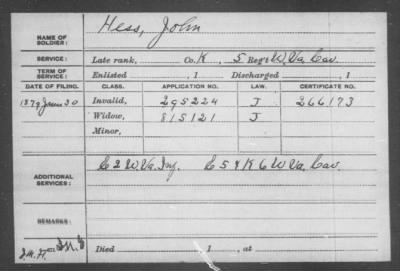 NAME OF SOLDIER: Hess, John
SERVICE: Late rank, Co. K, 5 Reg't W. Va. Cav.
TERM OF SERVICE: Enlisted , 1 Discharged , 1
DATE OF FILING. CLASS. APPLICATION NO. LAW. CERTIFICATE NO.
1879 June 30 Invalid, 295224 J 266173
Widow, 815121 J
Minor,
ADDITIONAL SERVICES: C 2 W. Va. Inf. C 5 & K 6 W. Va. Cav.
REMARKS:
J.M.H.
Died , 1 , at